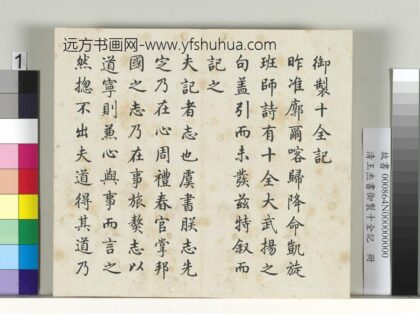 远方书画网-www.yfshuhua.com
御製十全記
昨准廓爾喀歸降命凱旋
班師詩有十全大武揚之
句蓋引而未發茲特叙而
記之
夫記者志也虞書朕志先
定乃在心周禮春官掌邦
國之志乃在事旅獒志以
道寧則兼心與事而言之
然揔不出夫道得其道乃
1
故書000864N000000000
清王杰書御製十全記 冊